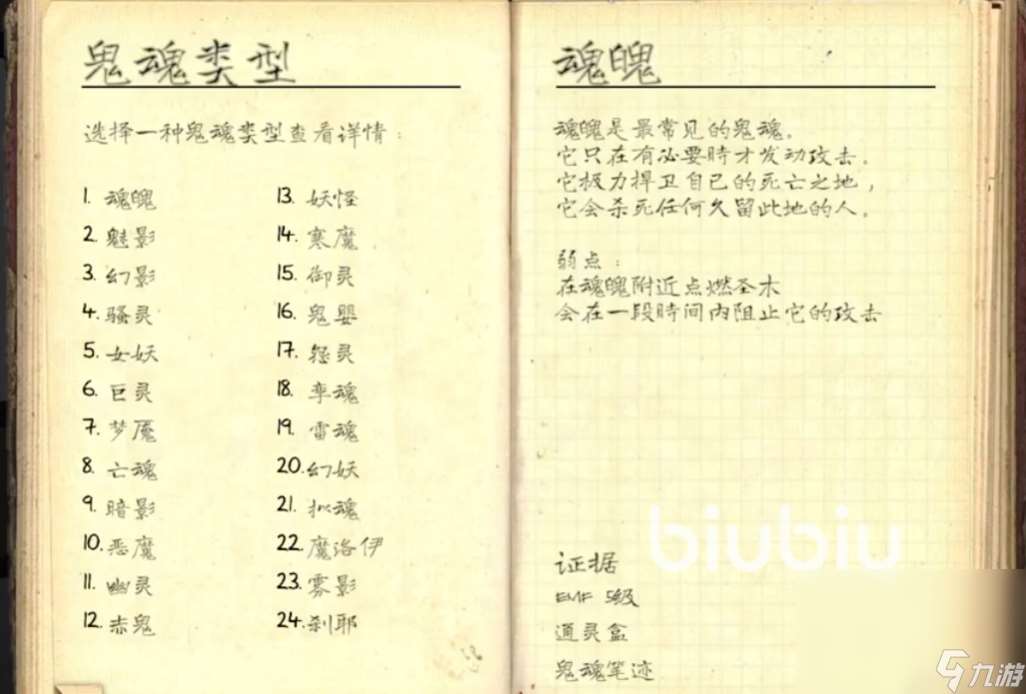 鬼魂类型
选择一种鬼魂类型查看详情:
1. 魂魄
2. 魅影
3. 幻影
4. 骚灵
5. 女妖
6. 巨灵
7. 梦魇
8. 亡魂
9. 暗影
10. 恶魔
11. 幽灵
12. 赤鬼
13. 妖怪
14. 寒魔
15. 御灵
16. 鬼婴
17. 怨灵
18. 孪魂
19. 雷魂
20. 幻妖
21. 拟魂
22. 魔洛伊
23. 雾影
24. 刹耶
魂魄
魂魄是最常见的鬼魂。
它只在有必要時才发动攻击。
它极力捍卫自己的死亡之地，
它会杀死任何久留此地的人。
弱点:
在魂魄附近点燃圣木
会在一段時间内阻止它的攻击
biubiu
证据
EMF 5级
通灵盒
鬼魂笔迹
九游